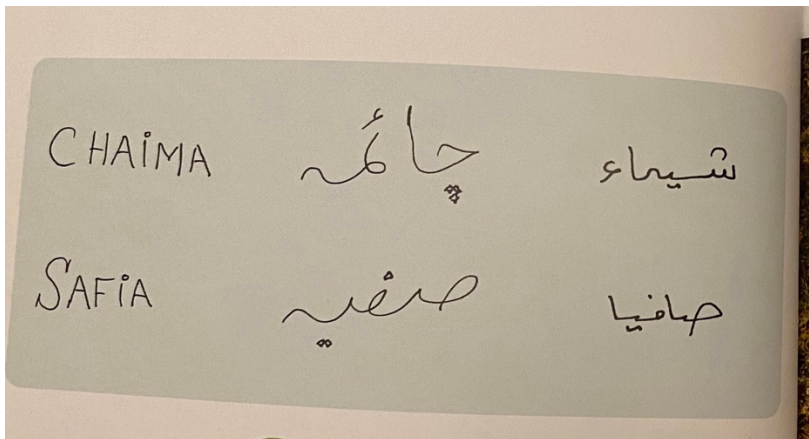 CHAiMA چائمہ شيماء
SAFiA صفیہ صافيا